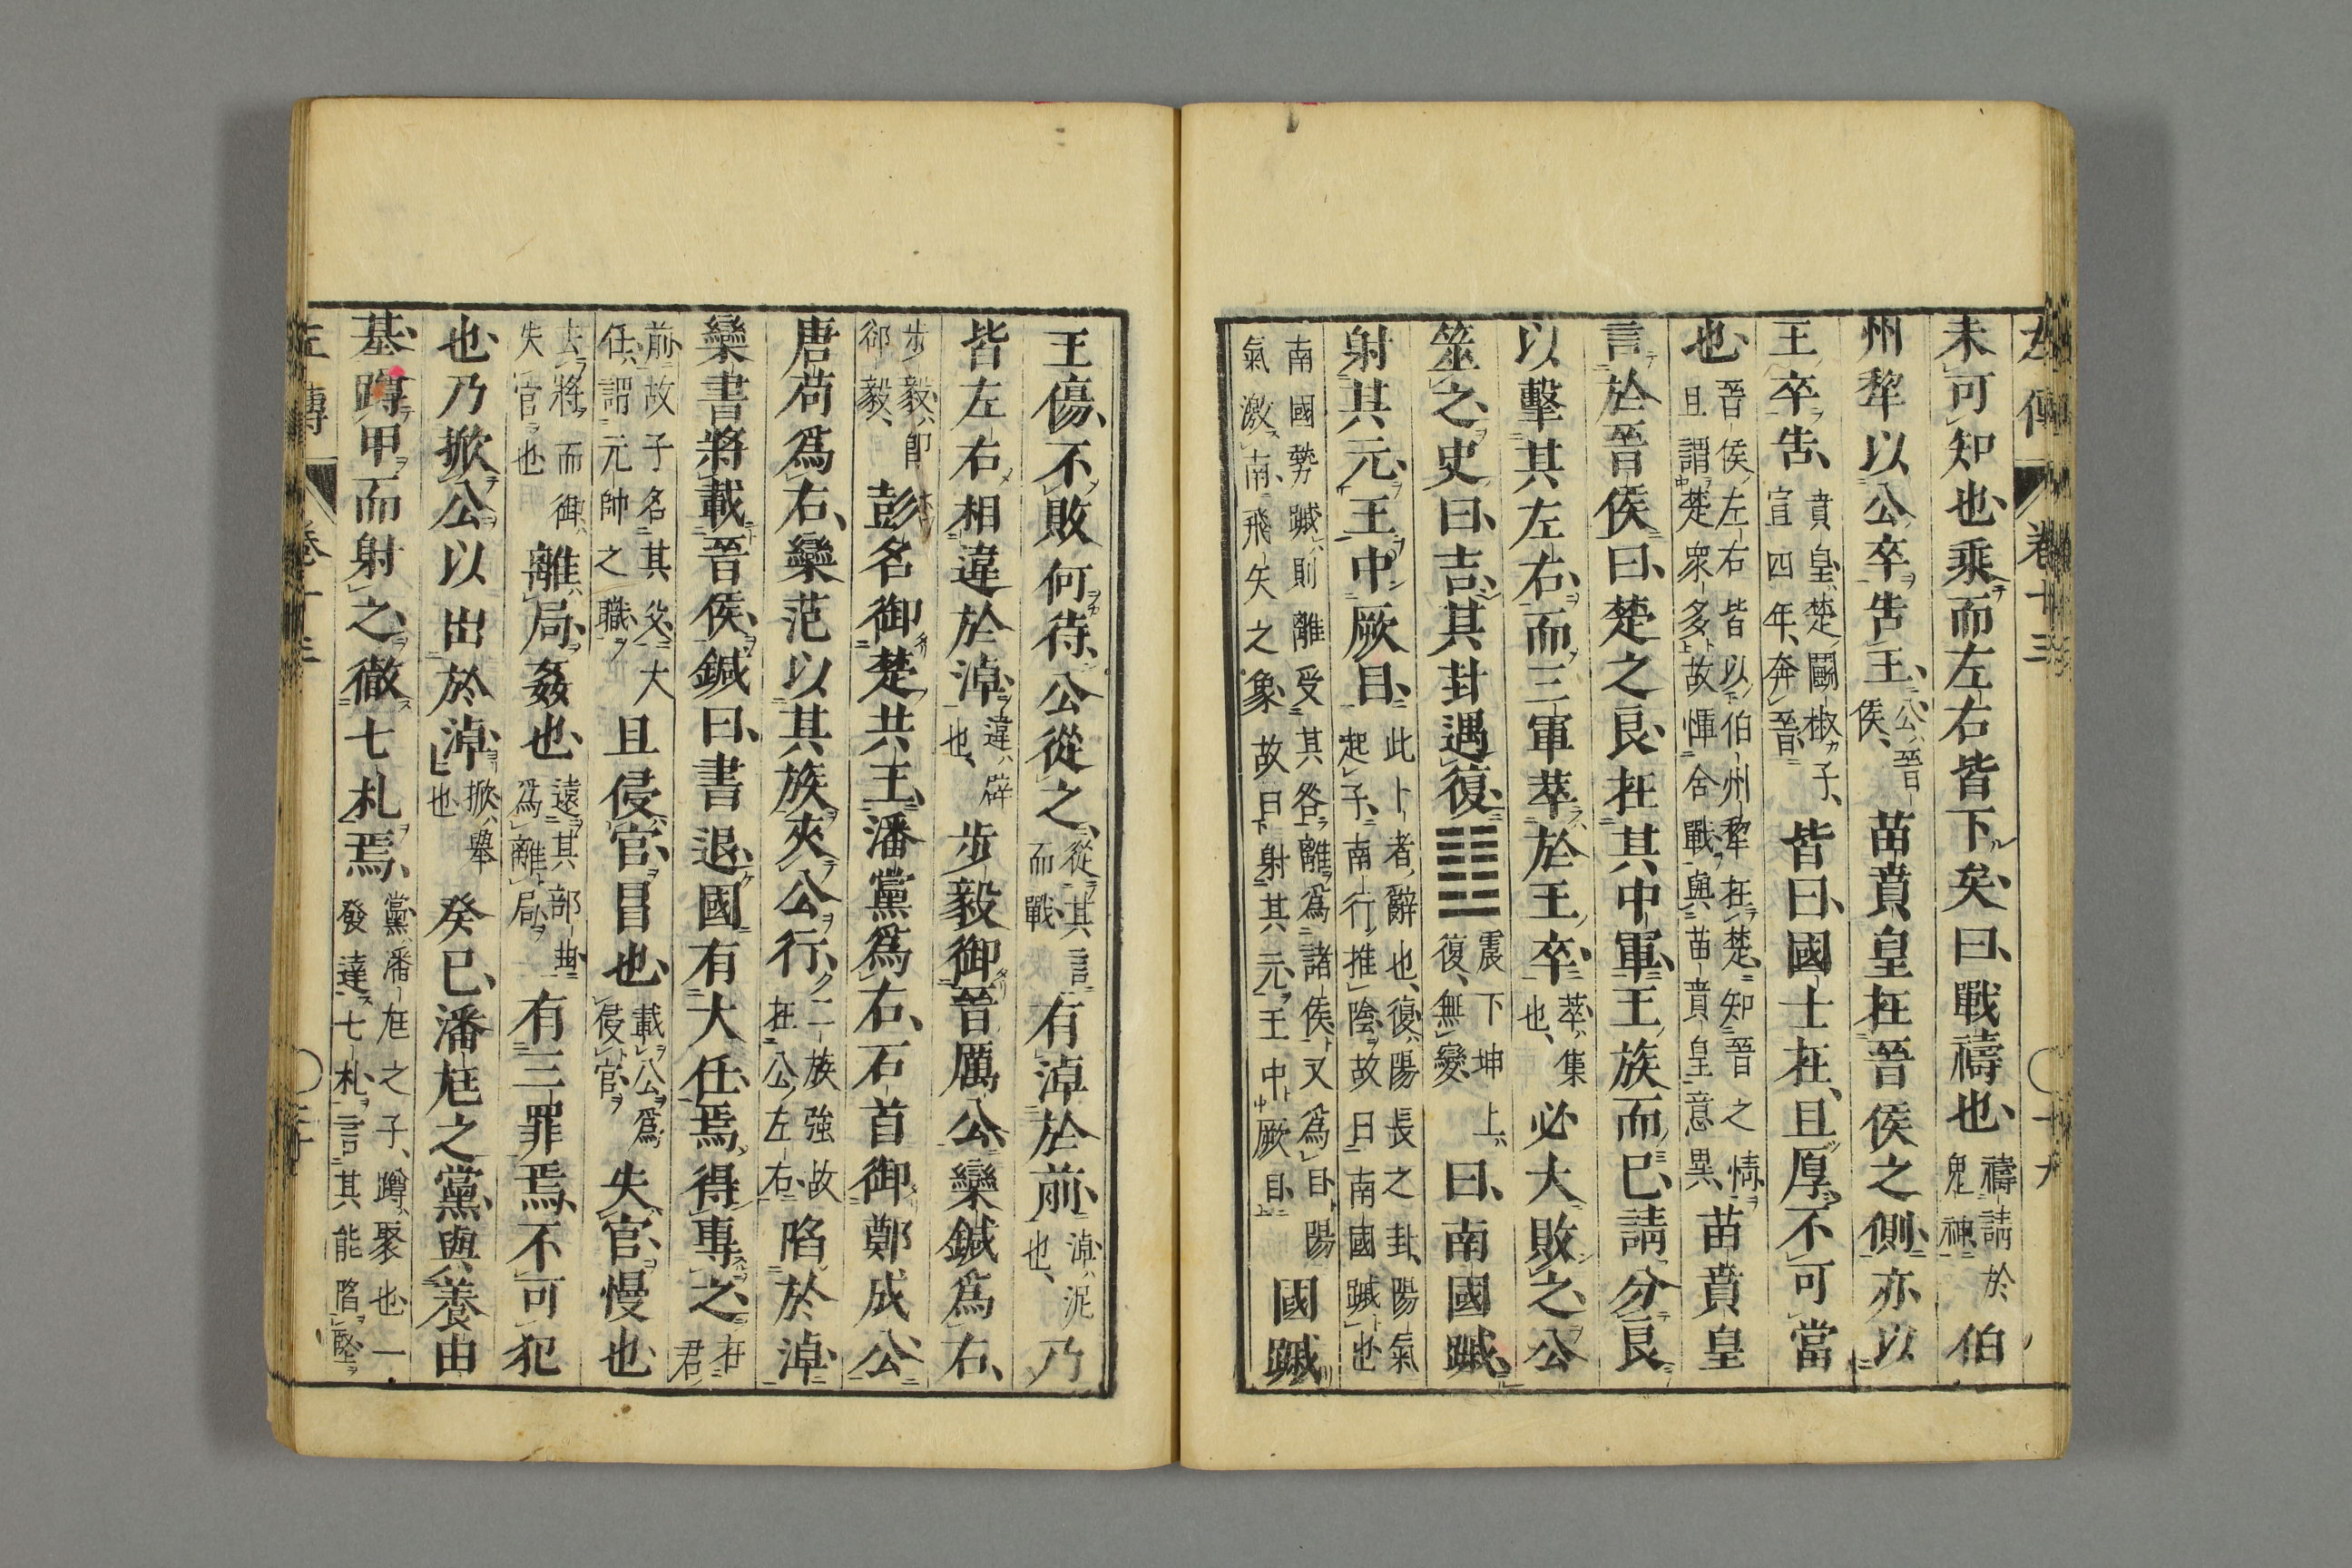 左傳 卷十三 十九
未可知也乘而左右皆下矣曰戰禱也禱請於鬼神伯
州犂以公卒告王公晉侯苗賁皇在晉侯之側亦以
王卒告賁皇楚鬬椒子宣四年奔晉皆曰國士在且厚不可當
也晉侯左右皆以伯州犂在楚知晉之情且謂楚衆多故憚合戰與苗賁皇意異苗賁皇
言於晉侯曰楚之良在其中軍王族而已請分良
以擊其左右而三軍萃於王卒萃集也必大敗之公
筮之史曰吉其卦遇復䷗震下坤上復無變曰南國蹙
射其元王中厥目此卜者辭也復陽長之卦陽氣起子南行推陰故曰南國蹙也
南國勢蹙則離受其咎離爲諸侯又爲目陽氣激南飛矢之象故曰射其元王中厥目國蹙
王傷不敗何待公從之從其言而戰有淖於前淖泥也乃
皆左右相違於淖違辟也步毅御晉厲公欒鍼爲右
步毅卽郤毅彭名御楚共王潘黨爲右石首御鄭成公
唐苟爲右欒范以其族夾公行二族強故在公左右陷於淖
欒書將載晉侯鍼曰書退國有大任焉得專之在君
前故子名其父大任謂元帥之職且侵官冒也載公爲侵官失官慢也
去將而御失官也離局姦也遠其部曲爲離局有三罪焉不可犯
也乃掀公以出於淖掀舉也癸巳潘尫之黨與養由
基蹲甲而射之徹七札焉黨潘尫之子蹲聚也一發達七札言其能陷堅
左傳 卷十三 二十